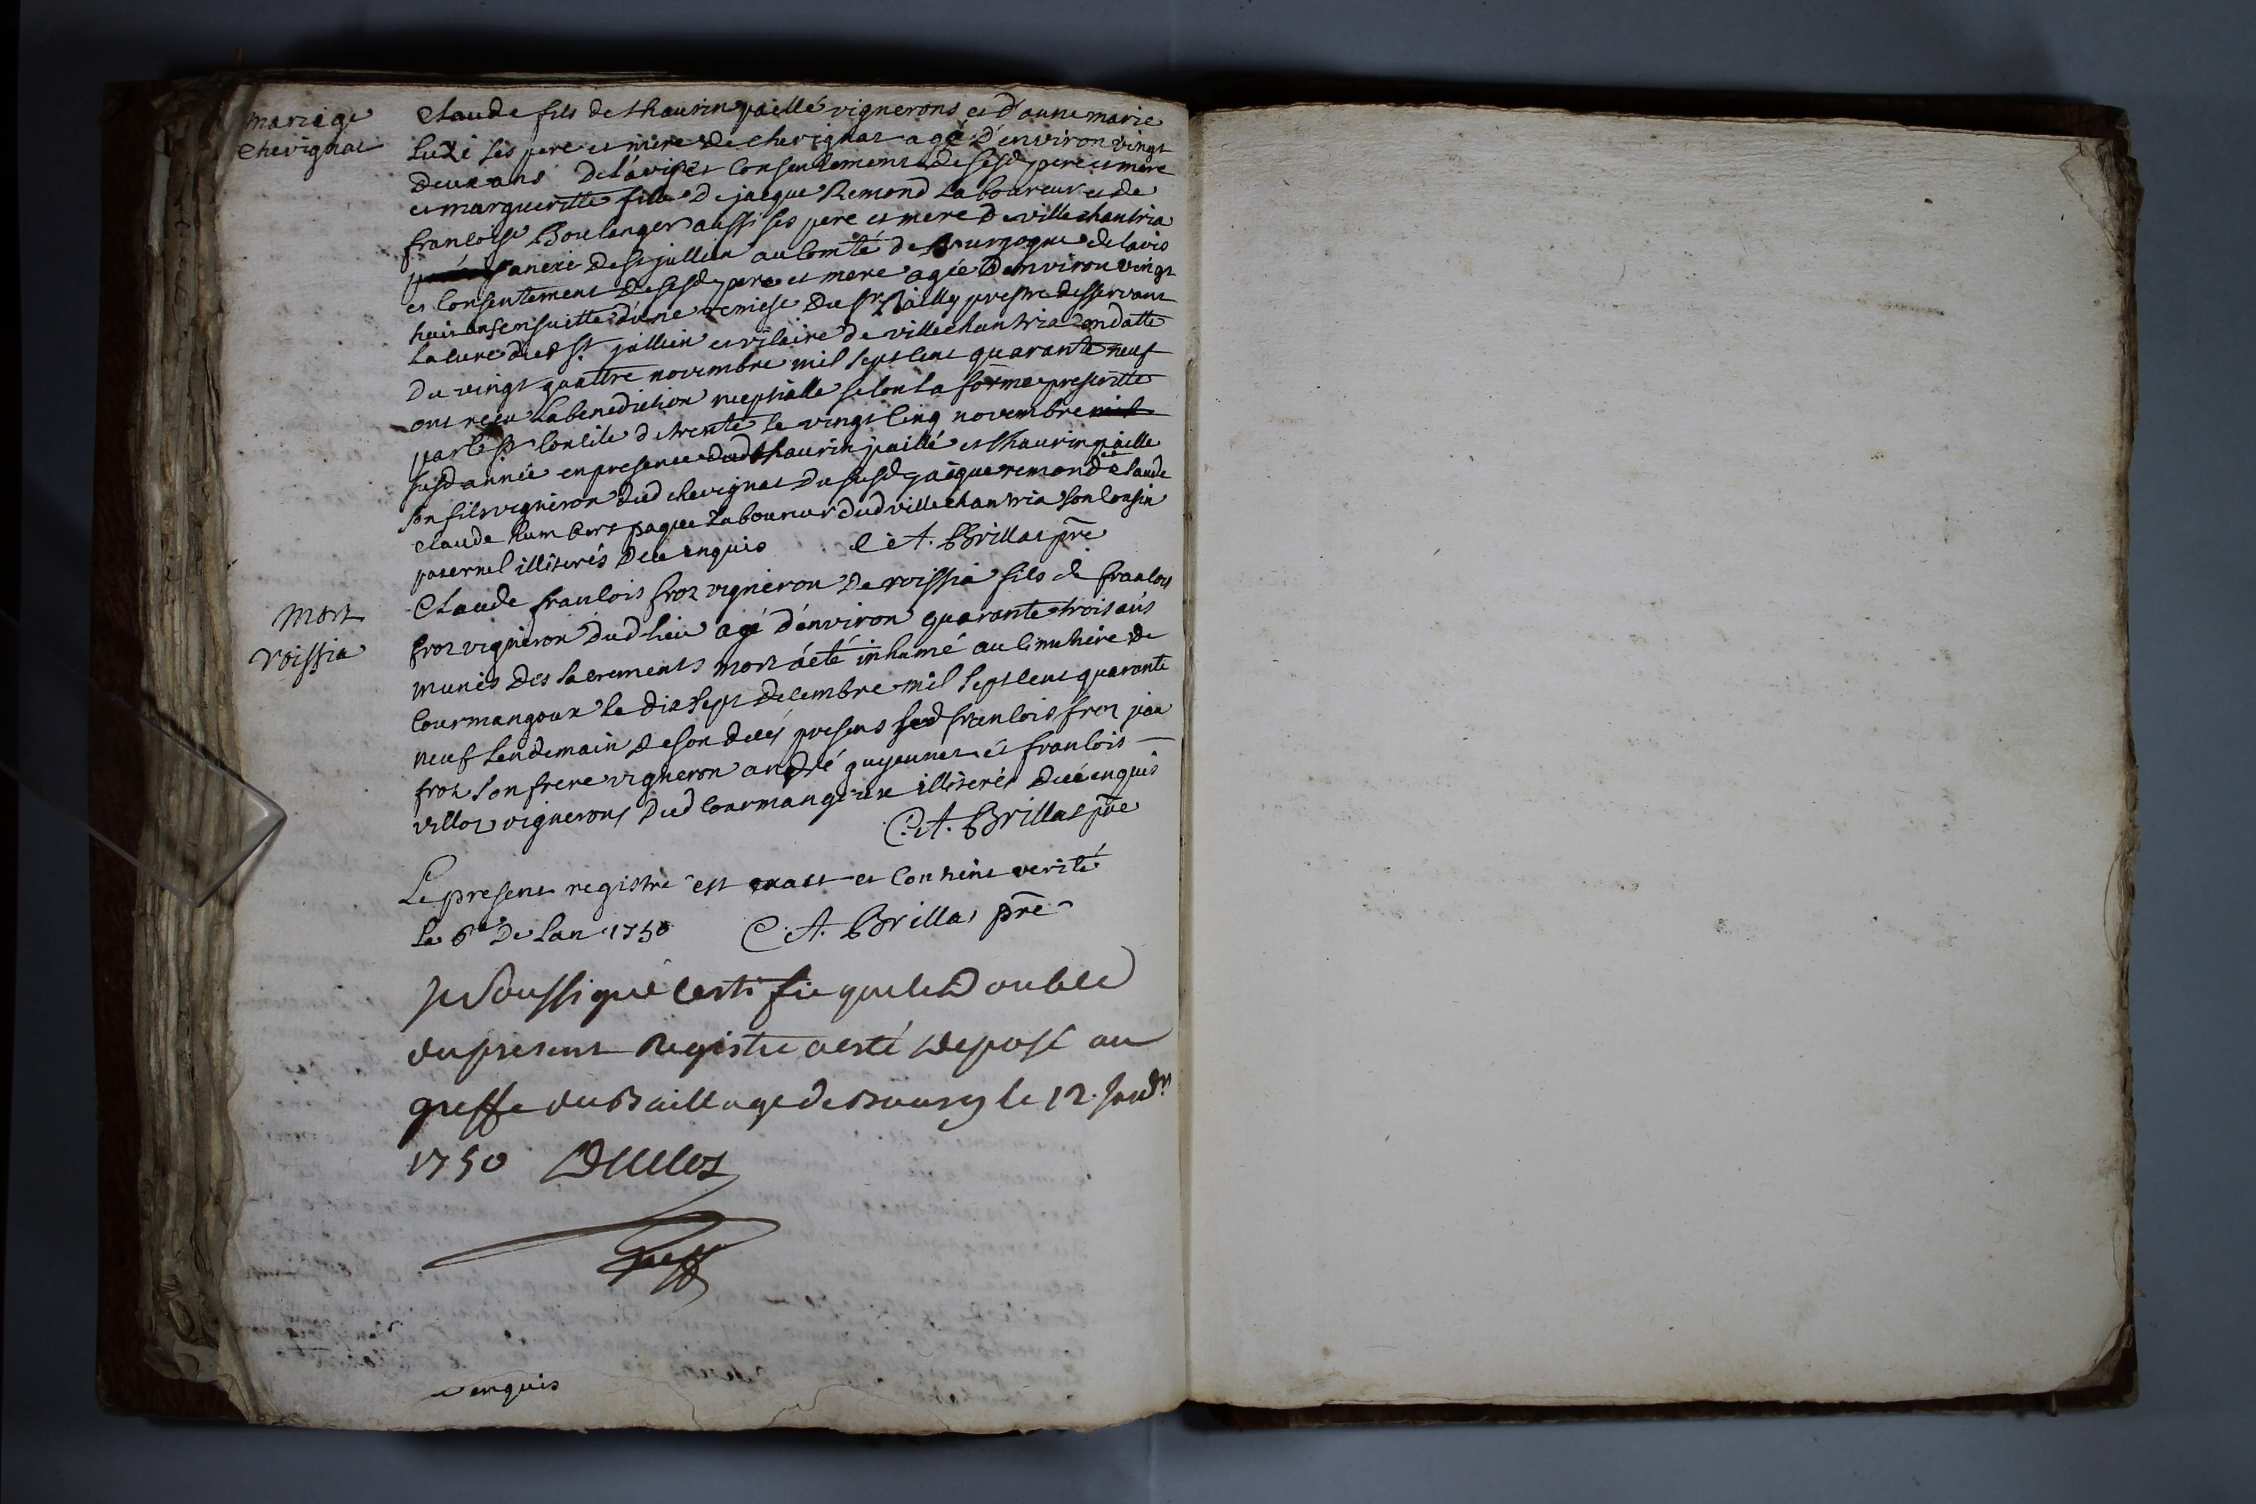 mariage
chevignat
Claude fils de thaurin paillé vignerons et d'anne marie
ludi ses pere et mere de chevignat agé d'environ vingt
deux ans de l'avis et consentement de sesd pere et mere
et margueritte fille de jacque Remond Laboureur et de
francoise Boulanger aussi ses pere et mere de villechantria
anexe de st jullien au comté de Bourgogne de lavis
et consentement de sesd pere et mere agée denviron vingt
huit ans ensuitte d'une remise du sr Bailly prestre desservant
la cure dud st jullien et vicaire de villechantria en datte
du vingt quattre novembre mil sept cent quarante neuf
ont reçu la benediction nuptialle selon la forme prescritte
par le st concile de trente le vingt cinq novembre mil
susd année en presence dud thaurin paillé et thaurin paille
son fils vigneron dud chevignat du susd jacque remond et claude
claude humbert paque laboureur dud villechantria son cousin
paternel illiterés de ce enquis C. A. Brillat pre
Mort
Voissia
Claude francois froz vigneron de voissia fils de francois
froz vigneron dud lieu agé d'environ quarante trois ans
munis des sacrements mort a eté inhumé au cimetiere de
Courmangoux le dix sept decembre mil sept cent quarante
neuf lendemain de son decés presens led francois froz
froz son frere vigneron andré guyennet et francois
villot vignerons dud Courmangoux illiterés de ce enquis
C. A. Brillat pre
Le present registre est exact et contient verité
le 6e de lan 1750 C. A. Brillat pre
Je soussigné certifie que le Double
du present Registre a esté deposé au
greffe du Baillage de Bourg le 12. Janvr
1750
Greff
enquis